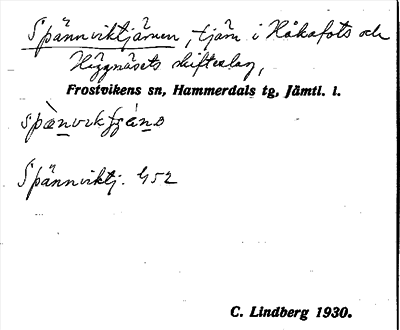 Spännviktjärnen, tjärn i Håkafots och
Häggnäsets skifteslag,
Frostvikens sn, Hammerdals tg, Jämtl. l.
Spännviktj. G52
C. Lindberg 1930.